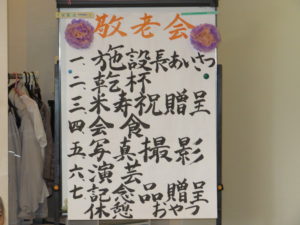 敬老会
一、施設長あいさつ
二、乾杯
三、米寿祝贈呈
四、会食
五、写真撮影
六、演芸
七、記念品贈呈
休憩 おやつ